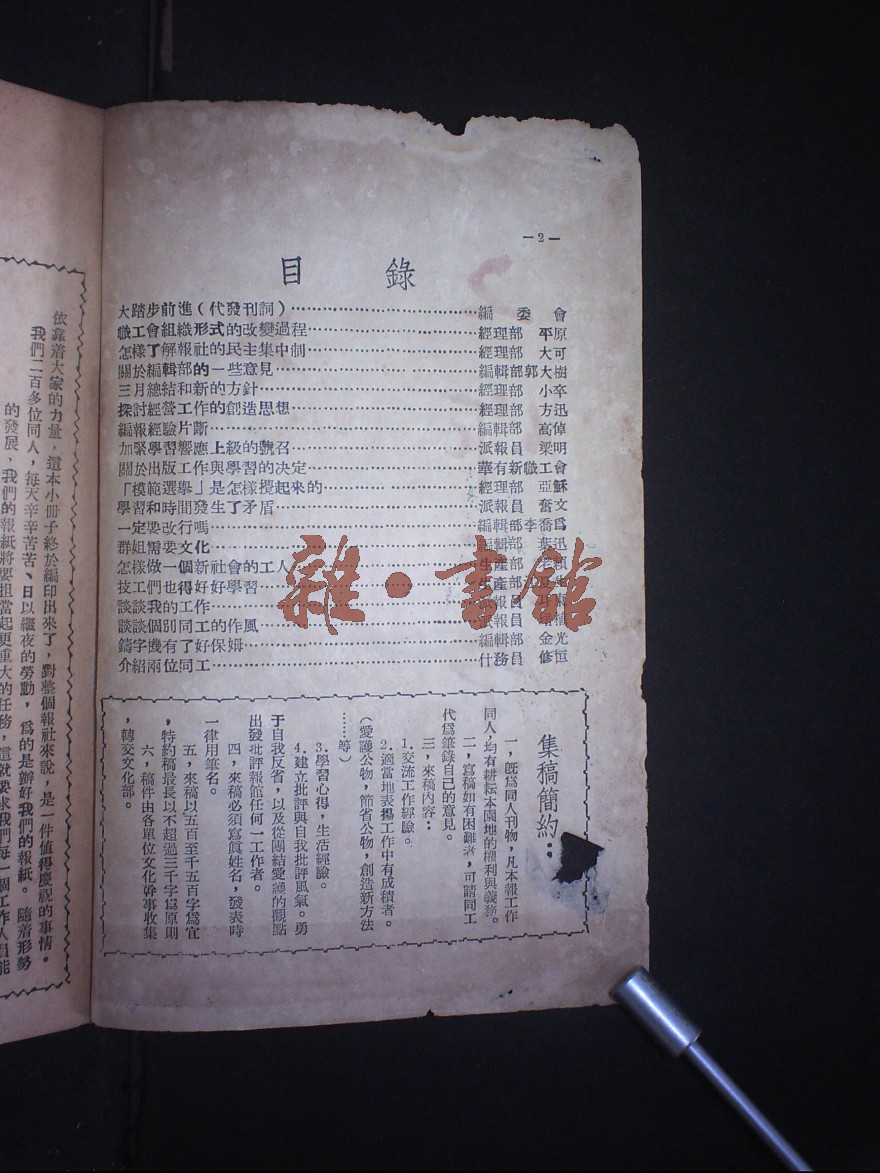 —2—
目錄
大踏步前進（代發刊詞）……編委會
職工會組織形式的改變過程……經理部 平原
怎樣了解報社的民主集中制……經理部 大可
關於編輯部的一些意見……編輯部 郭大樹
三月總結和新的方針……經理部 小卒
探討經營工作的創造思想……經理部 方迅
編報經驗片斷……編輯部 高倬
加緊學習響應上級的號召……派報員 梁明
關於出版工作與學習的决定……華有新職工會
「模範選舉」是怎樣攪起來的……經理部 亞穌
學習和時間發生了矛盾……派報員 奮文
一定要改行嗎……編輯部 李喬爲
群姐需要文化……部 葉迅
怎樣做一個新社會的工人……生產部
技工們也得好好學習……生產部
談談我的工作……派報員
談談個別同工的作風……派報員
鑄字機有了好保姆……編輯部 金光
介紹兩位同工……什務員 修恒
集稿簡約：
一，旣爲同人刊物，凡本報工作
同人，均有耕耘本園地的權利與義務。
二，寫稿如有困難者，可請同工
代爲筆錄自己的意見。
三，來稿內容：
1.交流工作經驗。
2.適當地表揚工作中有成積者。
（愛護公物，節省公物，創造新方法
……等）
3.學習心得，生活經驗。
4.建立批評與自我批評風氣。勇
于自我反省，以及從團結愛護的觀點
出發批評報館任何一工作者。
四，來稿必須寫眞姓名，發表時
一律用筆名。
五，來稿以五百至千五百字爲宜
，特約稿最長以不超過三千字爲原則
六，稿件由各單位文化幹事收集
，轉交文化部。
依靠着大家的力量，這本小冊子終於編印出來了，對整個報社來說，是一件值得慶祝的事情。
我們二百多位同人，每天辛辛苦苦、日以繼夜的勞動，爲的是辦好我們的報紙。隨着形勢
的發展，我們的報紙將要担當起更重大的任務，這就要求我們每一個工作人員能
雜·書館